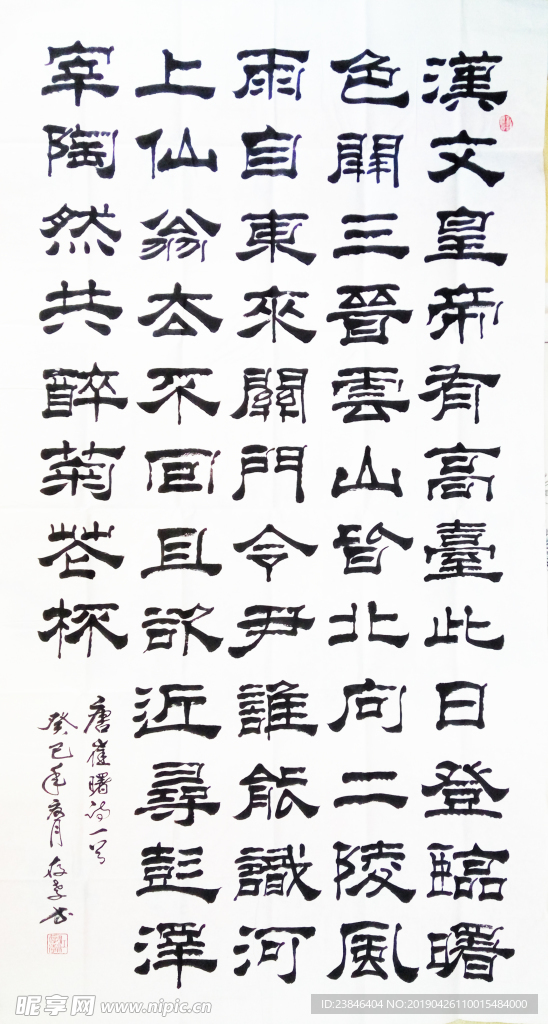 漢文皇帝有高臺此日登臨曙
色開三晉雲山皆北向二陵風
雨自東來關門令尹誰能識河
上仙翁去不回且欲近尋彭澤
宰陶然共醉菊花杯
唐崔曙詩一首
癸巳年夏月
昵享网 www.nipic.cn
ID:23846404 NO:20190426110015484000